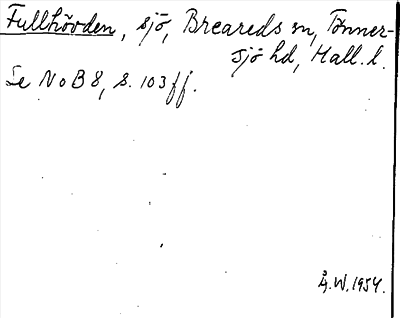 Fullhövden, sjö, Breareds sn, Tönner-
sjö hd, Hall. l.
Se NoB 8, s. 103 ff.
Å. W. 1954.